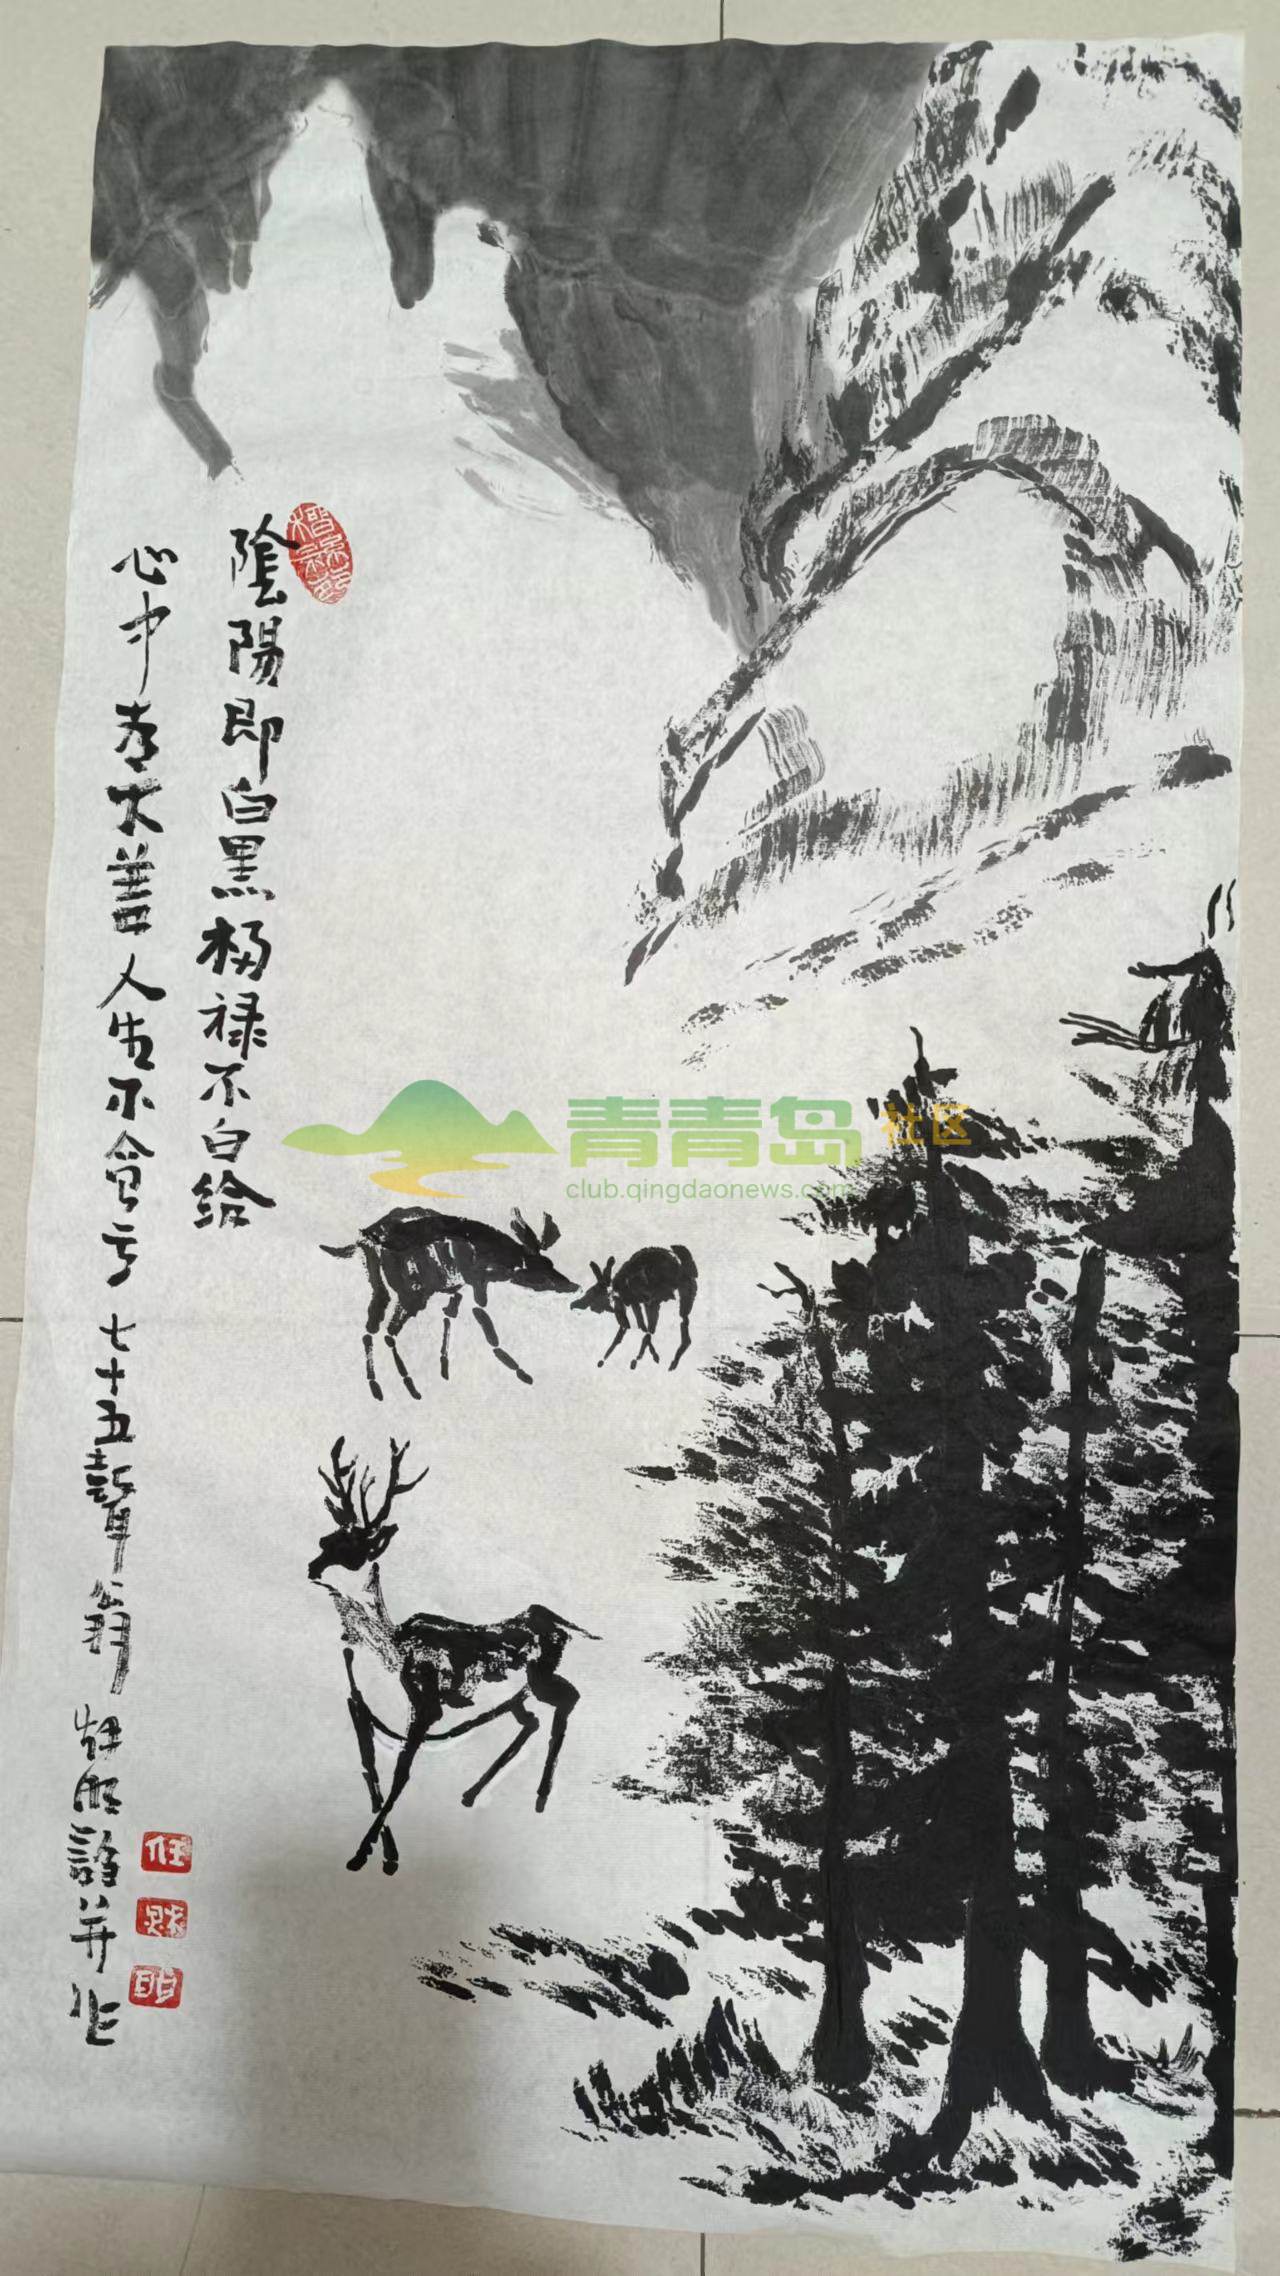 陰陽即白黑福禄不白給
心中有大善人生不會亏七十五聾翁任明詩并作
任
明
青青岛社区
club.qingdaonews.com